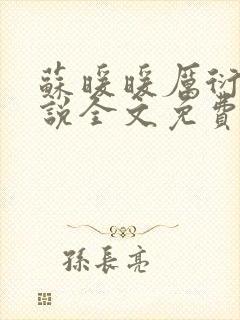 蘇暖暖厲衍
說全文免費
孫長亮